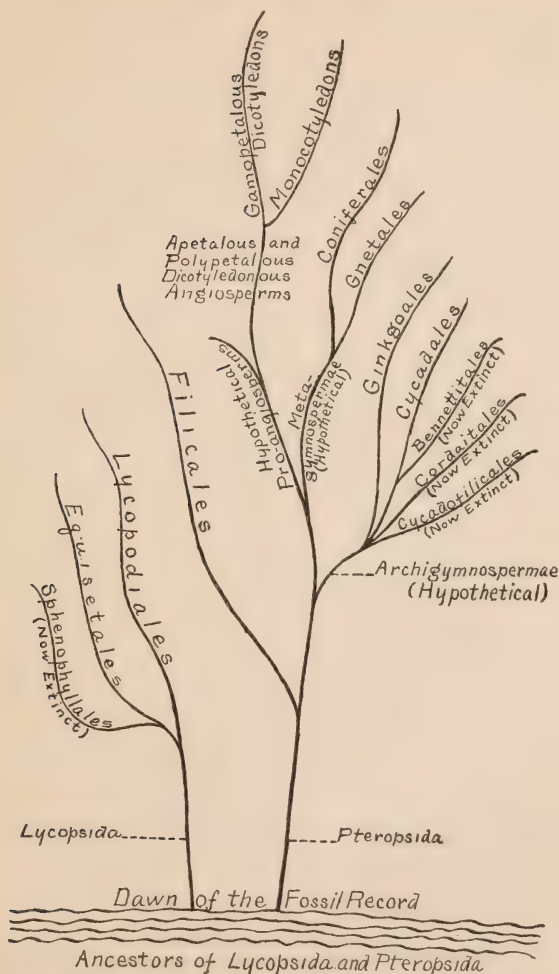 Gamopetalous
Dicotyledons
Monocotyledons
Apetalous and
Polypetalous
Dicotyledonous
Angiosperms
Coniferales
Gnetales
Ginkgoales
Cycadales
Bennettitales
(Now Extinct)
Cordaitales
(Now Extinct)
Cycadofilicales
(Now Extinct)
Hypothetical
Pro-angiosperms
Meta-
gymnospermae
(Hypothetical)
Filicales
Lycopodiales
Equisetales
Sphenophyllales
(Now Extinct)
Archigymnospermae
(Hypothetical)
Lycopsida
Pteropsida
Dawn of the Fossil Record
Ancestors of Lycopsida and Pteropsida